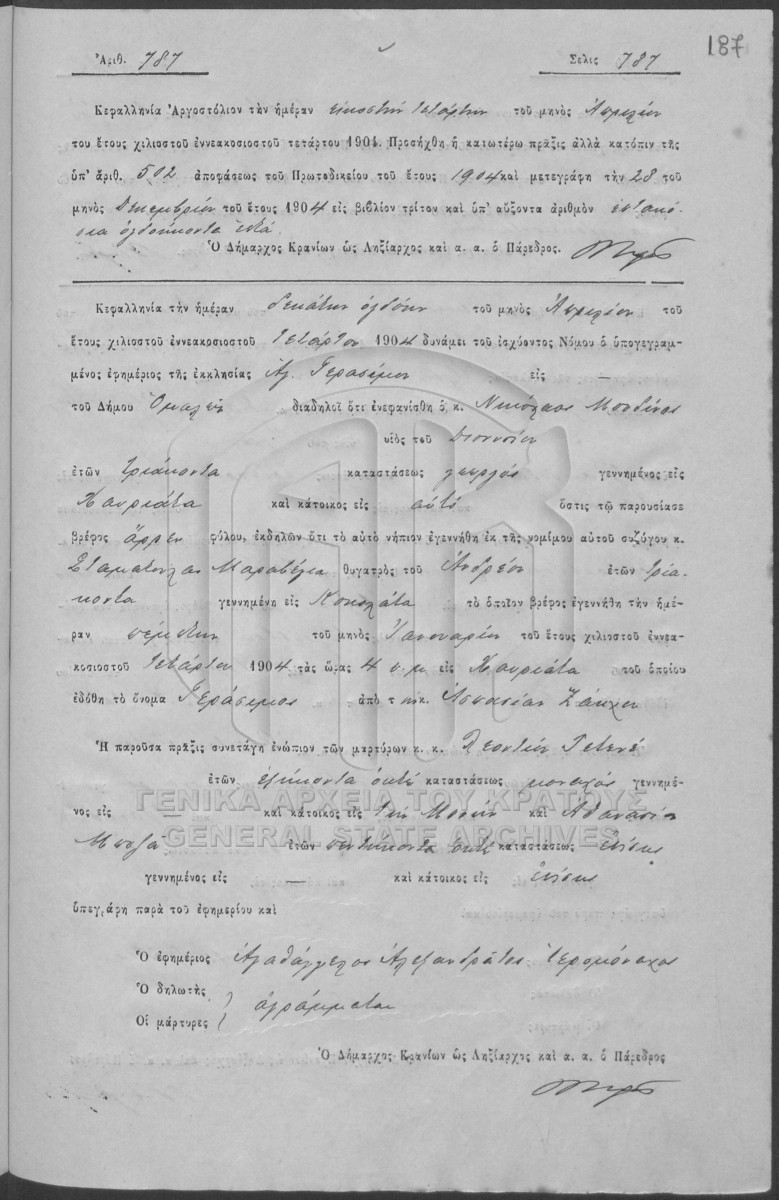 187
Ἀριθ. 787 Σελις 787
Κεφαλληνία Ἀργοστόλιον τὴν ἡμέραν εἰκοστὴν τετάρτην τοῦ μηνὸς Ἀπριλίου
του ἔτους χιλιοστοῦ ἐννεακοσιοστοῦ τετάρτου 1904. Προσήχθη ἡ κατωτέρω πρᾶξις ἀλλὰ κατόπιν τῆς
ὑπ' ἀριθ. 502 ἀποφάσεως τοῦ Πρωτοδικείου τοῦ ἔτους 1904 καὶ μετεγράφη τὴν 28 τοῦ
μηνὸς Δεκεμβρίου τοῦ ἔτους 1904 εἰς βιβλίον τρίτον καὶ ὑπ' αὔξοντα ἀριθμὸν ἑπτακό-
σια ὀγδοήκοντα ἑπτά.
Ὁ Δήμαρχος Κρανίων ὡς Ληξίαρχος καὶ α. α. ὁ Πάρεδρος.
Κεφαλληνία τὴν ἡμέραν δεκάτην ὀγδόην τοῦ μηνὸς Ἀπριλίου τοῦ
ἔτους χιλιοστοῦ ἐννεακοσιοστοῦ τετάρτου 1904 δυνάμει τοῦ ἰσχύοντος Νόμου ὁ ὑπογεγραμ-
μένος ἐφημέριος τῆς ἐκκλησίας Ἁγ. Γερασίμου εἰς —
τοῦ Δήμου Ὁμαλῶν διαδηλοῖ ὅτι ἐνεφανίσθη ὁ κ. Νικόλαος
υἱὸς τοῦ Διονυσίου
ἐτῶν τριάκοντα καταστάσεως γεωργός γεννημένος εἰς
Χαυριάτα καὶ κάτοικος εἰς αὐτό ὅστις τῷ παρουσίασε
βρέφος ἄρρεν φύλου, ἐκδηλῶν ὅτι τὸ αὐτὸ νήπιον ἐγεννήθη ἐκ τῆς νομίμου αὐτοῦ συζύγου κ.
Σταματούλας Μαραβέγια θυγατρὸς τοῦ Ἀνδρέου ἐτῶν τριά-
κοντα γεννημένη εἰς Κοκολάτα τὸ ὁποῖον βρέφος ἐγεννήθη τὴν ἡμέ-
ραν πέμπτην τοῦ μηνὸς Ἰανουαρίου τοῦ ἔτους χιλιοστοῦ ἐννεα-
κοσιοστοῦ τετάρτου 1904 τὰς ὥρας 4 π.μ. εἰς Χαυριάτα τοῦ ὁποίου
ἐδόθη τὸ ὄνομα Γεράσιμος ἀπὸ τ ην κ. Ἀσπασίαν
Ἡ παροῦσα πρᾶξις συνετάγη ἐνώπιον τῶν μαρτύρων κ. κ. Λεοντίου
ἐτῶν ἑξήκοντα ὀκτώ καταστάσεως μοναχός γεννημέ-
νος εἰς — καὶ κάτοικος εἰς τὴν Μονήν καὶ Ἀθανασίου
ἐτῶν πεντήκοντα ὀκτώ καταστάσεως ἐπίσης
γεννημένος εἰς — καὶ κάτοικος εἰς ἐπίσης
ὑπεγράφη παρὰ τοῦ ἐφημερίου καὶ
Ὁ ἐφημέριος Ἀγαθάγγελος Ἀλεξανδράτος Ἱερομόναχος
Ὁ δηλωτὴς
ἀγράμματοι
Οἱ μάρτυρες
Ὁ Δήμαρχος Κρανίων ὡς Ληξίαρχος καὶ α. α. ὁ Πάρεδρος
ΓΕΝΙΚΑ ΑΡΧΕΙΑ ΤΟΥ ΚΡΑΤΟΥΣ
GENERAL STATE ARCHIVES